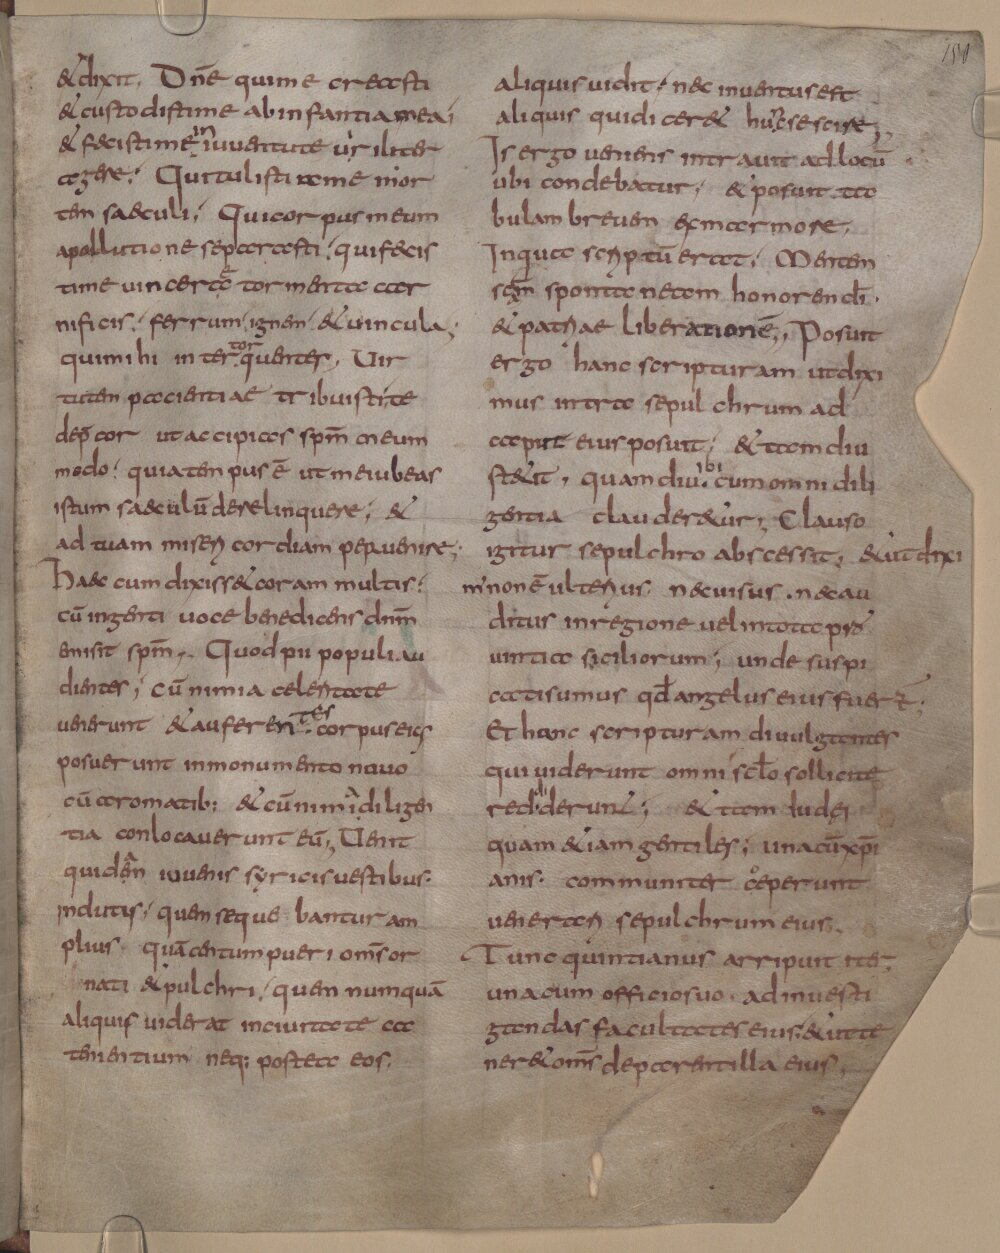 150
& dixit. Dñe qui me creasti
& custodisti me ab infantia mea;
& fecisti me in iuventute viriliter
agere; Qui tulisti a me mor
tem saeculi; Qui corpus meum
a pollutione separasti; qui fecis
ti me vincere tormenta car
nificis; ferrum, ignem, & vincula;
qui mihi inter torquentes, Vir
tutem pacientiae tribuisti; te
dep̄cor ut accipias sp̄m meum
modo; quia tempus ē ut me iubeas
istum saeculū derelinquere; &
ad tuam misericordiam pervenire;
Haec cum dixiss& coram multis;
cū ingenti voce benedicens dn̄m
emisit sp̄m. Quod pii populi au
dientes; cū nimia celeritate
venerunt & auferentes corpus eius
posuerunt in monumento novo
cū aromatib; & cū nimia diligen
tia conlocaverunt eū; Venit
quidam iuvenis syricis vestibus
indutis; quem sequebantur am
plius quā centum pueri om̄s or
nati & pulchri; quem numquā
aliquis viderat in civitate ca
tenentium neq; postea eos
aliquis vidit; nec inventus est
aliquis qui dicer& hunc se scire;
Is ergo veniens intravit ad locū
ubi condebatur; & posuit ta
bulam brevem ex marmore.
In qua scriptū erat; Mentem
sc̄m spontaneam honorem dī.
& patriae liberationē; Posuit
ergo hanc scripturam ut dixi
mus intra sepulchrum ad
caput eius posuit; & tam diu
st&it, quamdiu ibi cum omni dili
gentia clauder&ur; Clauso
igitur sepulchro abscessit, & ut dixi
m' non ē ulterius nec visus nec au
ditus in regione vel in tota pro
vintia siciliorum; unde suspi
cati sumus qđ angelus eius fuer&;
Et hanc scripturam divulgantes
qui viderunt omni sc̄lo sollicite
reddiderunt; & tam Iudei
quam &iam gentiles; una cū xp̄i
anis communiter coeperunt
venerari sepulchrum eius.
Tunc quintianus arripuit iter
una cum officio suo ad investi
gandas facultates eius; & ut te
ner& om̄s de parentilla eius,